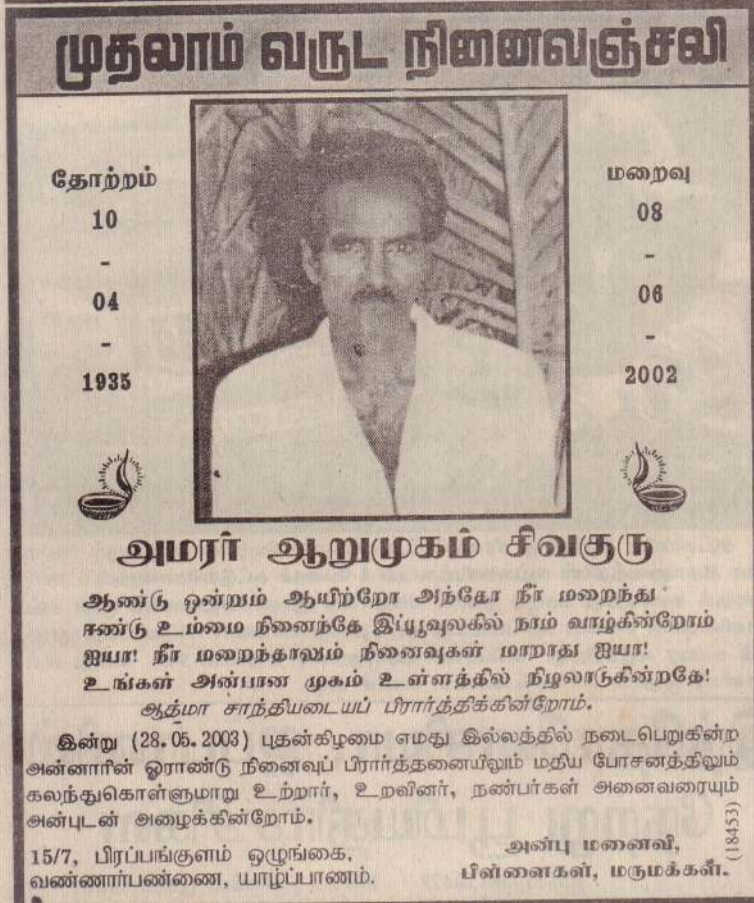 முதலாம் வருட நினைவஞ்சலி
தோற்றம்
10
-
04
-
1935
மறைவு
08
-
06
-
2002
அமரர் ஆறுமுகம் சிவகுரு
ஆண்டு ஒன்றும் ஆயிற்றோ அந்தோ நீர் மறைந்து
ஈண்டு உம்மை நினைந்தே இப்பூவுலகில் நாம் வாழ்கின்றோம்
ஐயா! நீர் மறைந்தாலும் நினைவுகள் மாறாது ஐயா!
உங்கள் அன்பான முகம் உள்ளத்தில் நிழலாடுகின்றதே!
ஆத்மா சாந்தியடையப் பிரார்த்திக்கின்றோம்.
இன்று (28.05.2003) புதன்கிழமை எமது இல்லத்தில் நடைபெறுகின்ற
அன்னாரின் ஓராண்டு நினைவுப் பிரார்த்தனையிலும் மதிய போசனத்திலும்
கலந்துகொள்ளுமாறு உற்றார், உறவினர், நண்பர்கள் அனைவரையும்
அன்புடன் அழைக்கின்றோம்.
15/7, பிரப்பங்குளம் ஒழுங்கை,
வண்ணார்பண்ணை, யாழ்ப்பாணம்.
அன்பு மனைவி,
பிள்ளைகள், மருமக்கள்.
(18453)